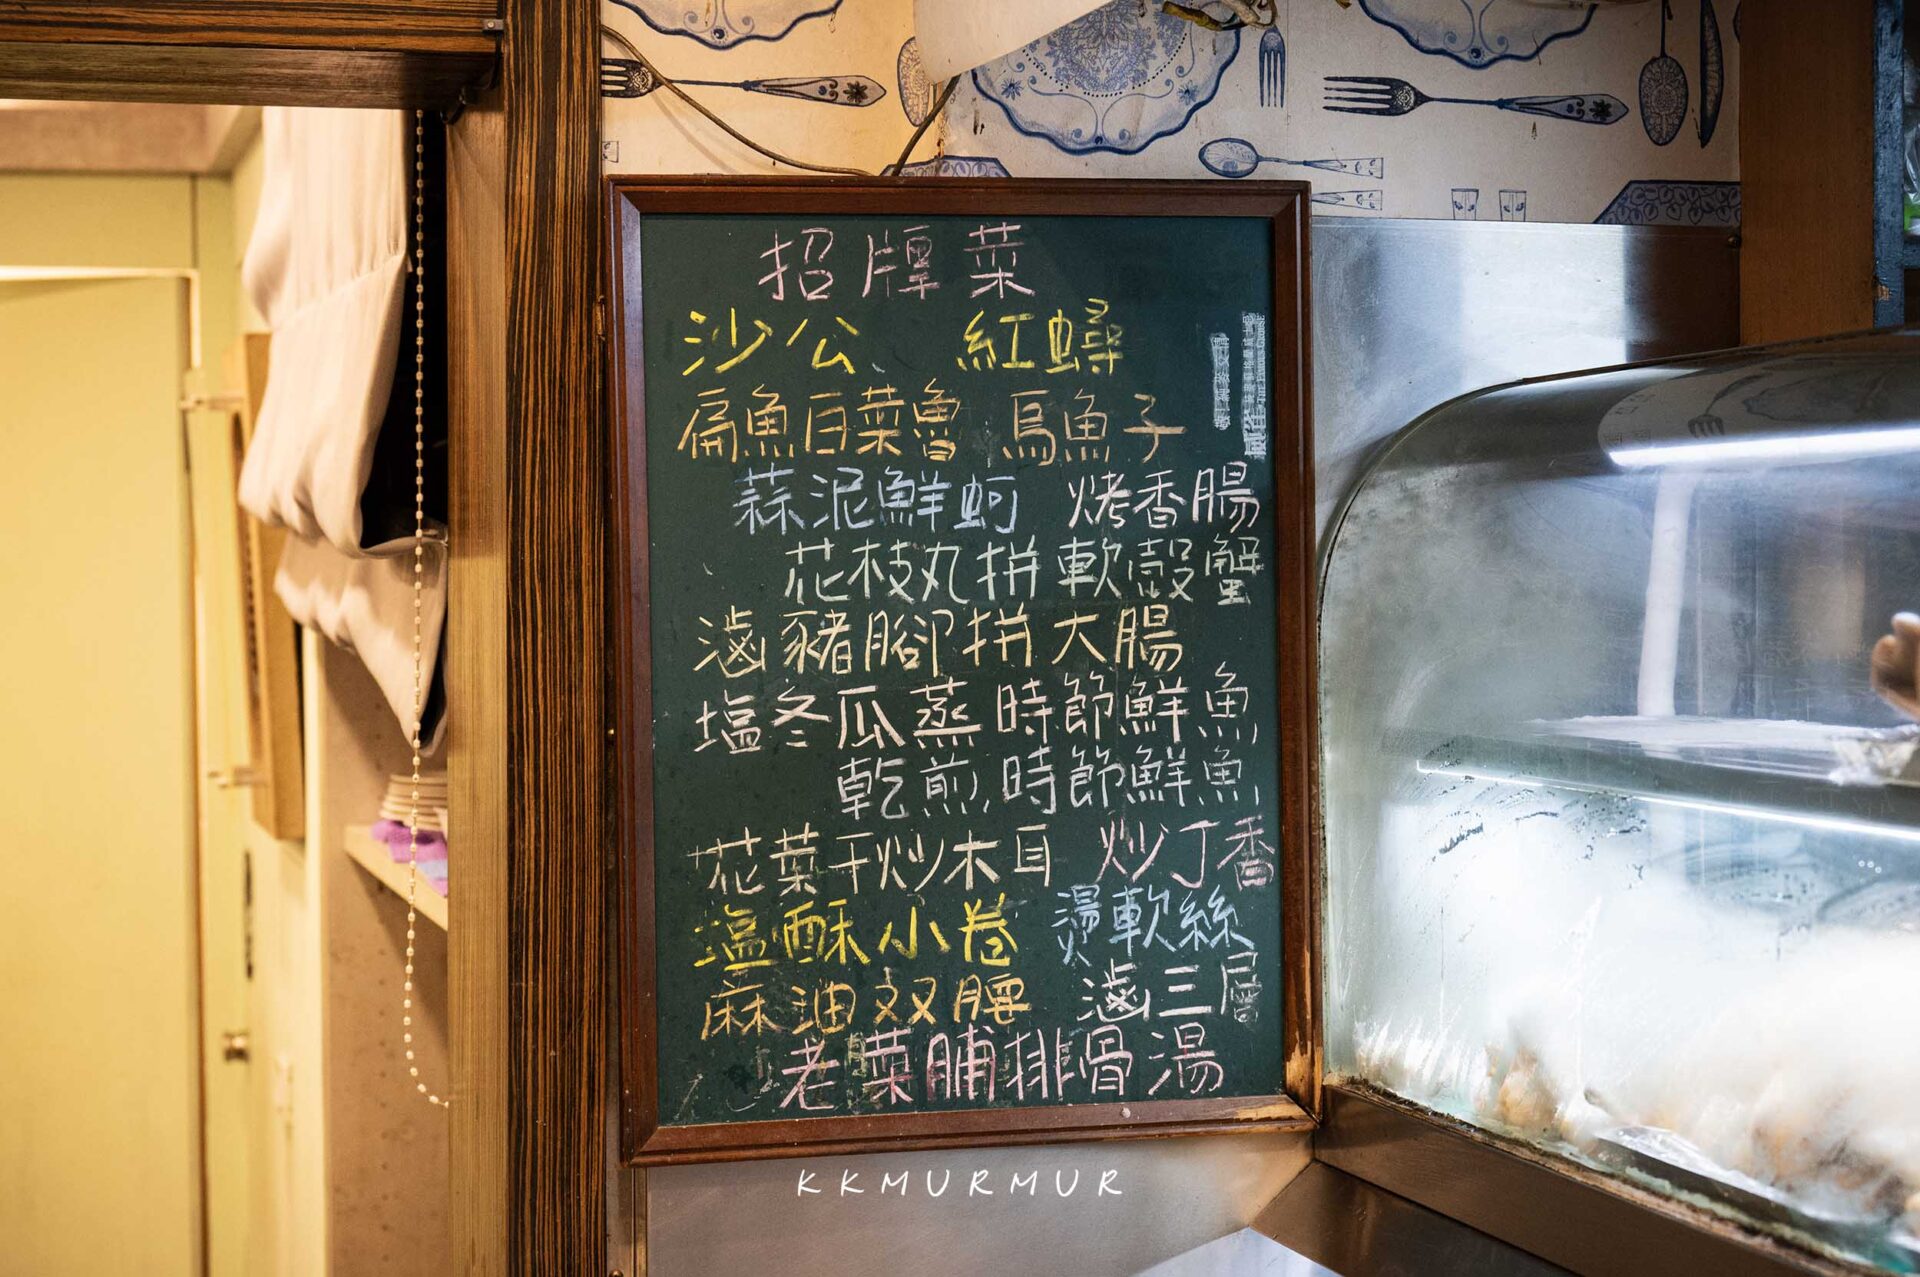 招牌菜
沙公、 紅蟳
扁魚白菜魯 烏魚子
蒜泥鮮蚵 烤香腸
花枝丸拼軟殼蟹
滷豬腳拼大腸
塩冬瓜蒸時節鮮魚
乾煎時節鮮魚
花菜干炒木耳 炒丁香
塩酥小卷 燙軟絲
麻油双腰 滷三層
老菜脯排骨湯
KKMURMUR